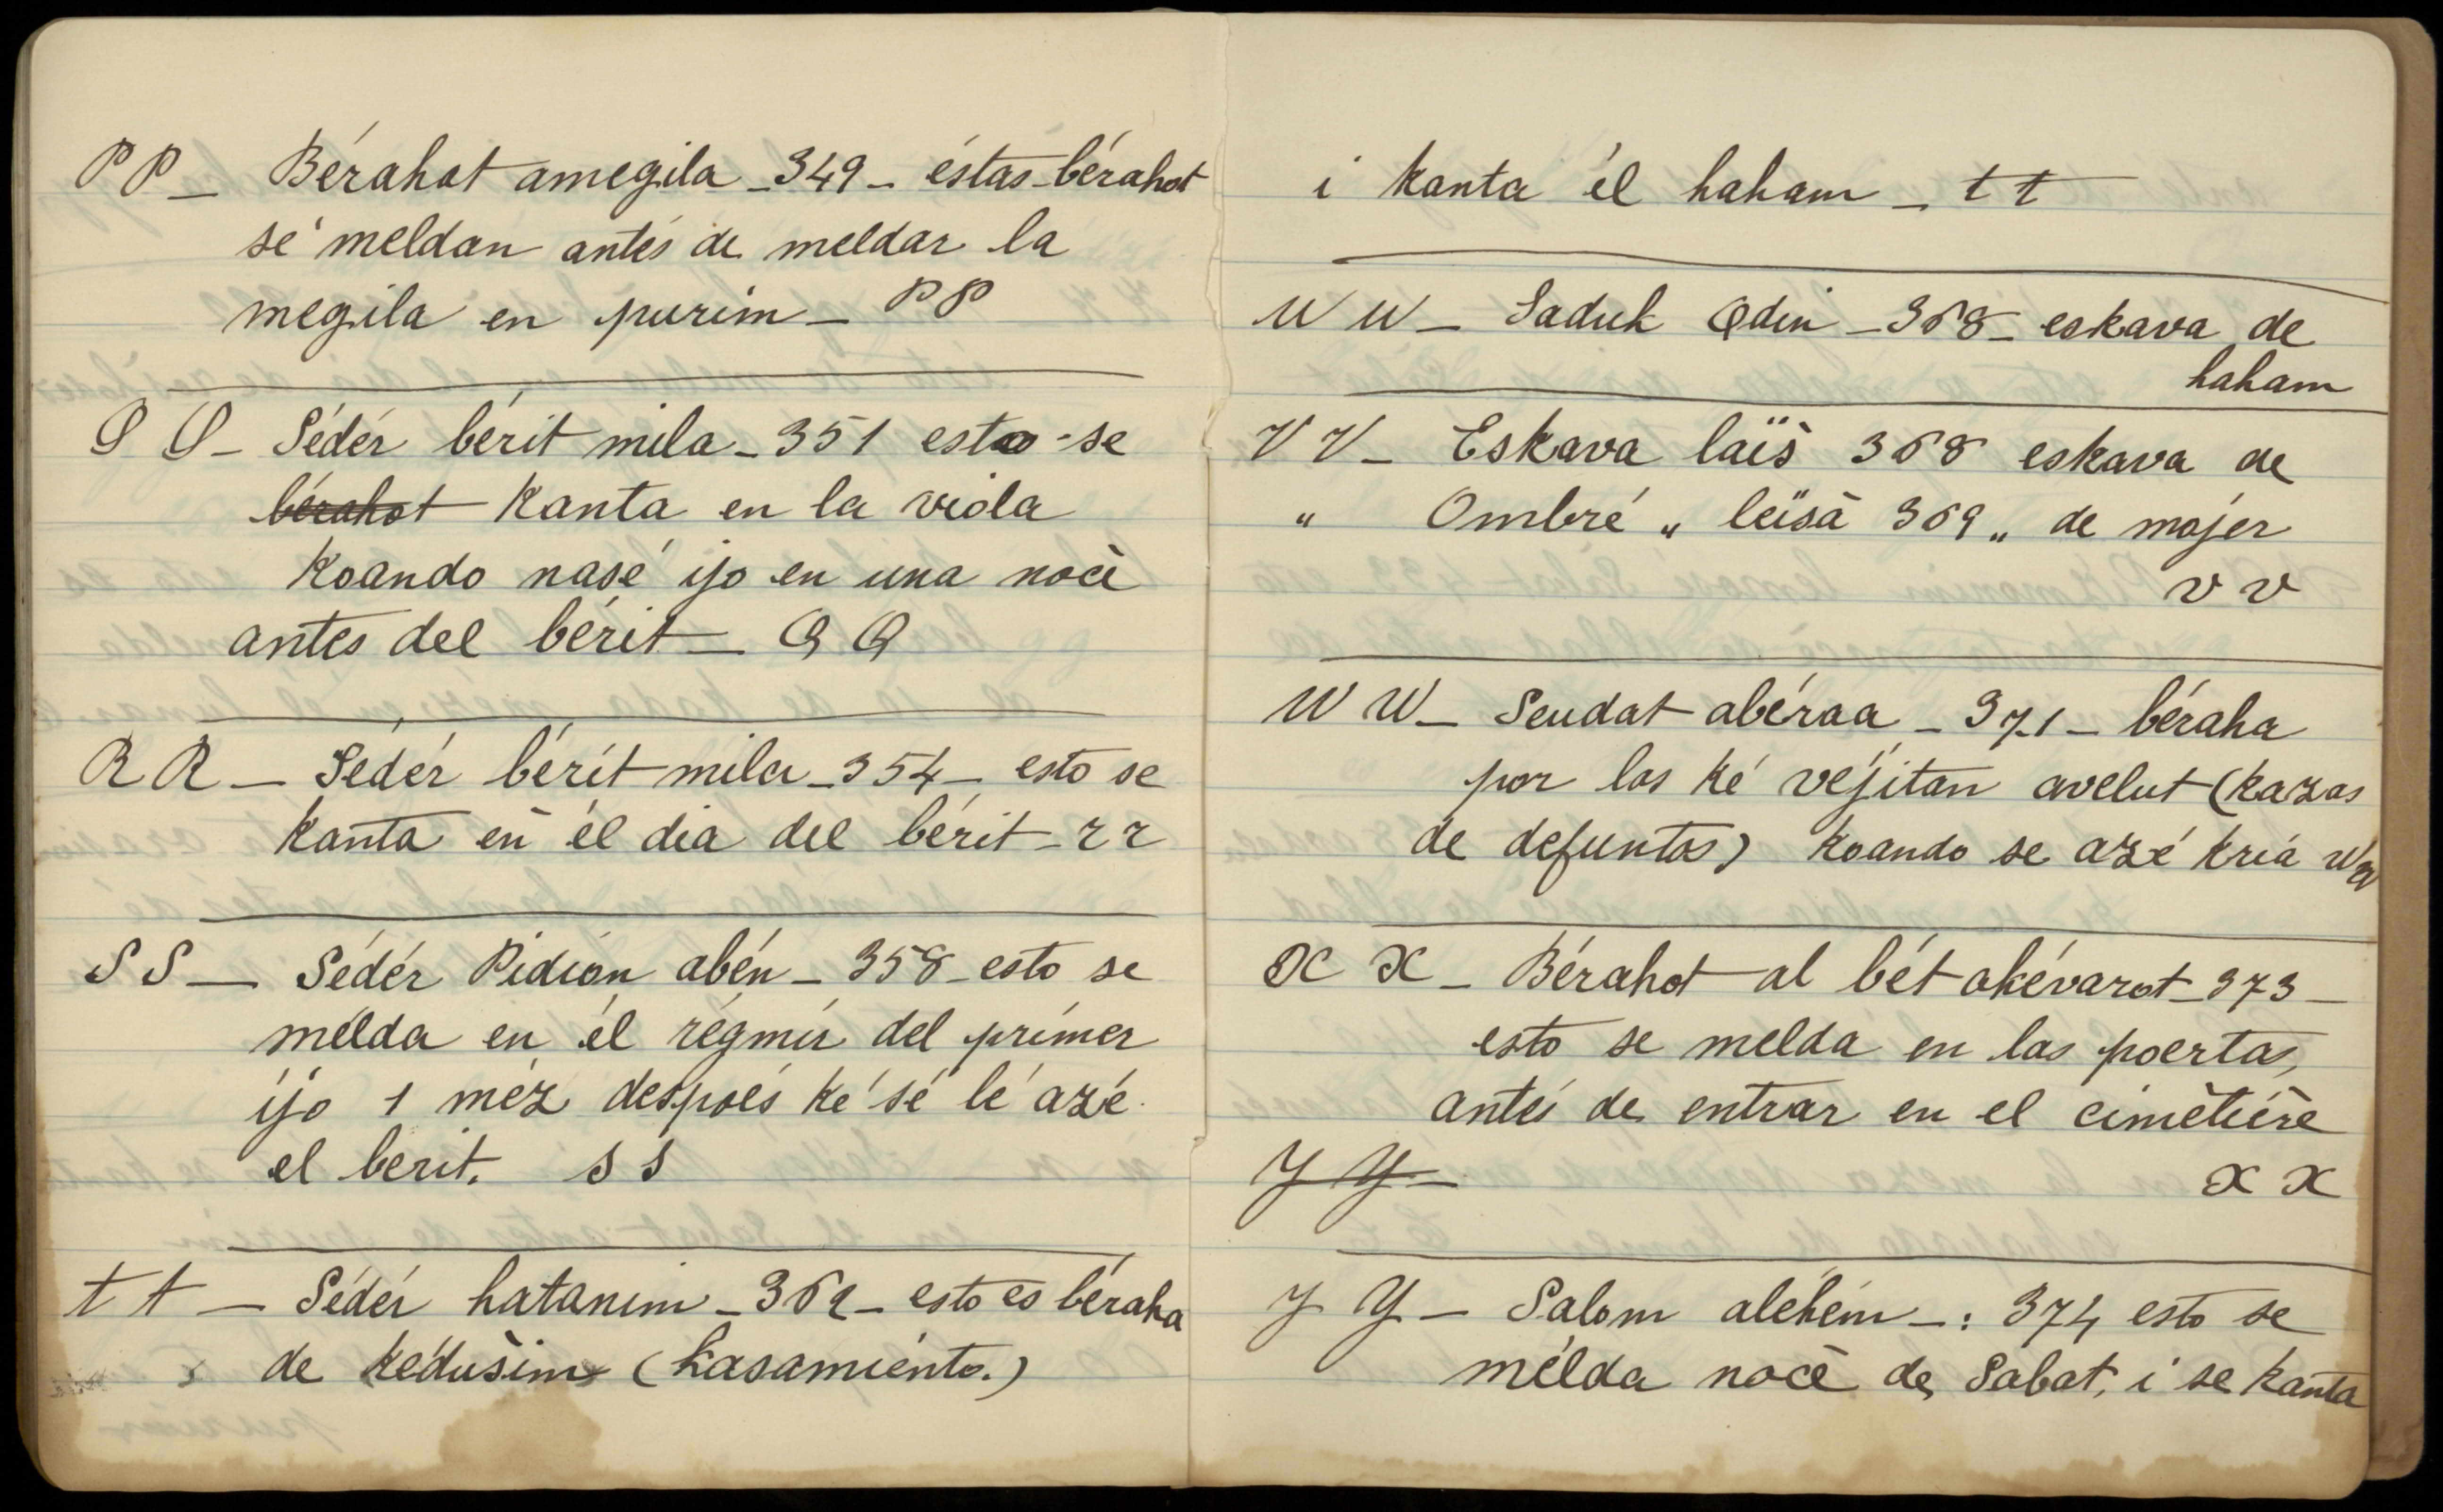 PP _ Bérahot amegila _ 349 _ éstas bérahot
sé meldan antés de meldar la
megila en purim _ PP
Q Q _ Sédér bérit mila _ 351 esto se
bérahot kanta en la viola
koando nasé ijo en una nocè
antes del bérit _ Q Q
R R _ Sédér bérit mila _ 354 _ esto se
kanta en él dia del bérit _ r r
S S _ Sédér Pidion abén _ 358 _ esto se
mélda en él régmir del primer
ijo 1 méz despoés ké sé lé azé
el berit. s s
t t _ Sédér hatanim _ 362 _ esto es béraha
de kédušim (kasamiénto.)
i kanta él haham _ t t
U U _ Saduk Odin _ 368 _ eskava de
haham
V V _ Eskava laïš 368 eskava de
" Ombré " leïšà 369 " de mojer
v v
W W _ Seudat abéraa _ 371 _ béraha
por los ké véjitan avelut (kazas
de defuntos) koando se azé kriá w w
X X _ Bérahot al bét akévarot _ 373 _
esto se melda en las poertas,
antés de entrar en el cimètière
Y Y _ x x
Y Y _ Salom aléhém _ : 374 esto se
mélda nocè de Sabat, i se kanta